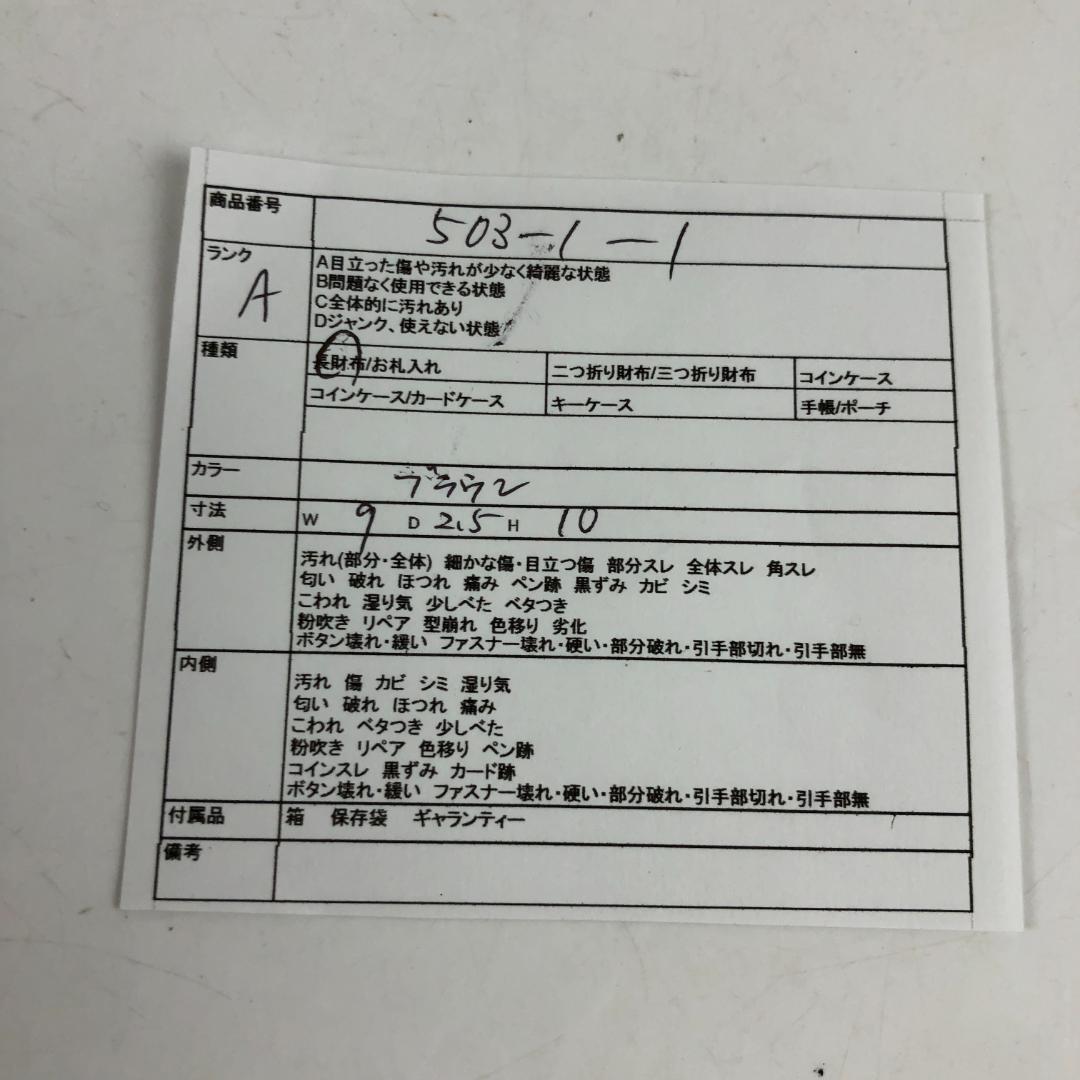 商品番号 503-1-1
ランク A
A目立った傷や汚れが少なく綺麗な状態
B問題なく使用できる状態
C全体的に汚れあり
Dジャンク、使えない状態
種類 長財布/お札入れ 二つ折り財布/三つ折り財布 コインケース
コインケース/カードケース キーケース 手帳/ポーチ
カラー ブラウン
寸法 W 9 D 2.5 H 10
外側
汚れ(部分・全体) 細かな傷・目立つ傷 部分スレ 全体スレ 角スレ
匂い 破れ ほつれ 痛み ペン跡 黒ずみ カビ シミ
こわれ 湿り気 少しべた ベタつき
粉吹き リペア 型崩れ 色移り 劣化
ボタン壊れ・緩い ファスナー壊れ・硬い・部分破れ・引手部切れ・引手部無
内側
汚れ 傷 カビ シミ 湿り気
匂い 破れ ほつれ 痛み
こわれ ベタつき 少しべた
粉吹き リペア 色移り ペン跡
コインスレ 黒ずみ カード跡
ボタン壊れ・緩い ファスナー壊れ・硬い・部分破れ・引手部切れ・引手部無
付属品 箱 保存袋 ギャランティー
備考